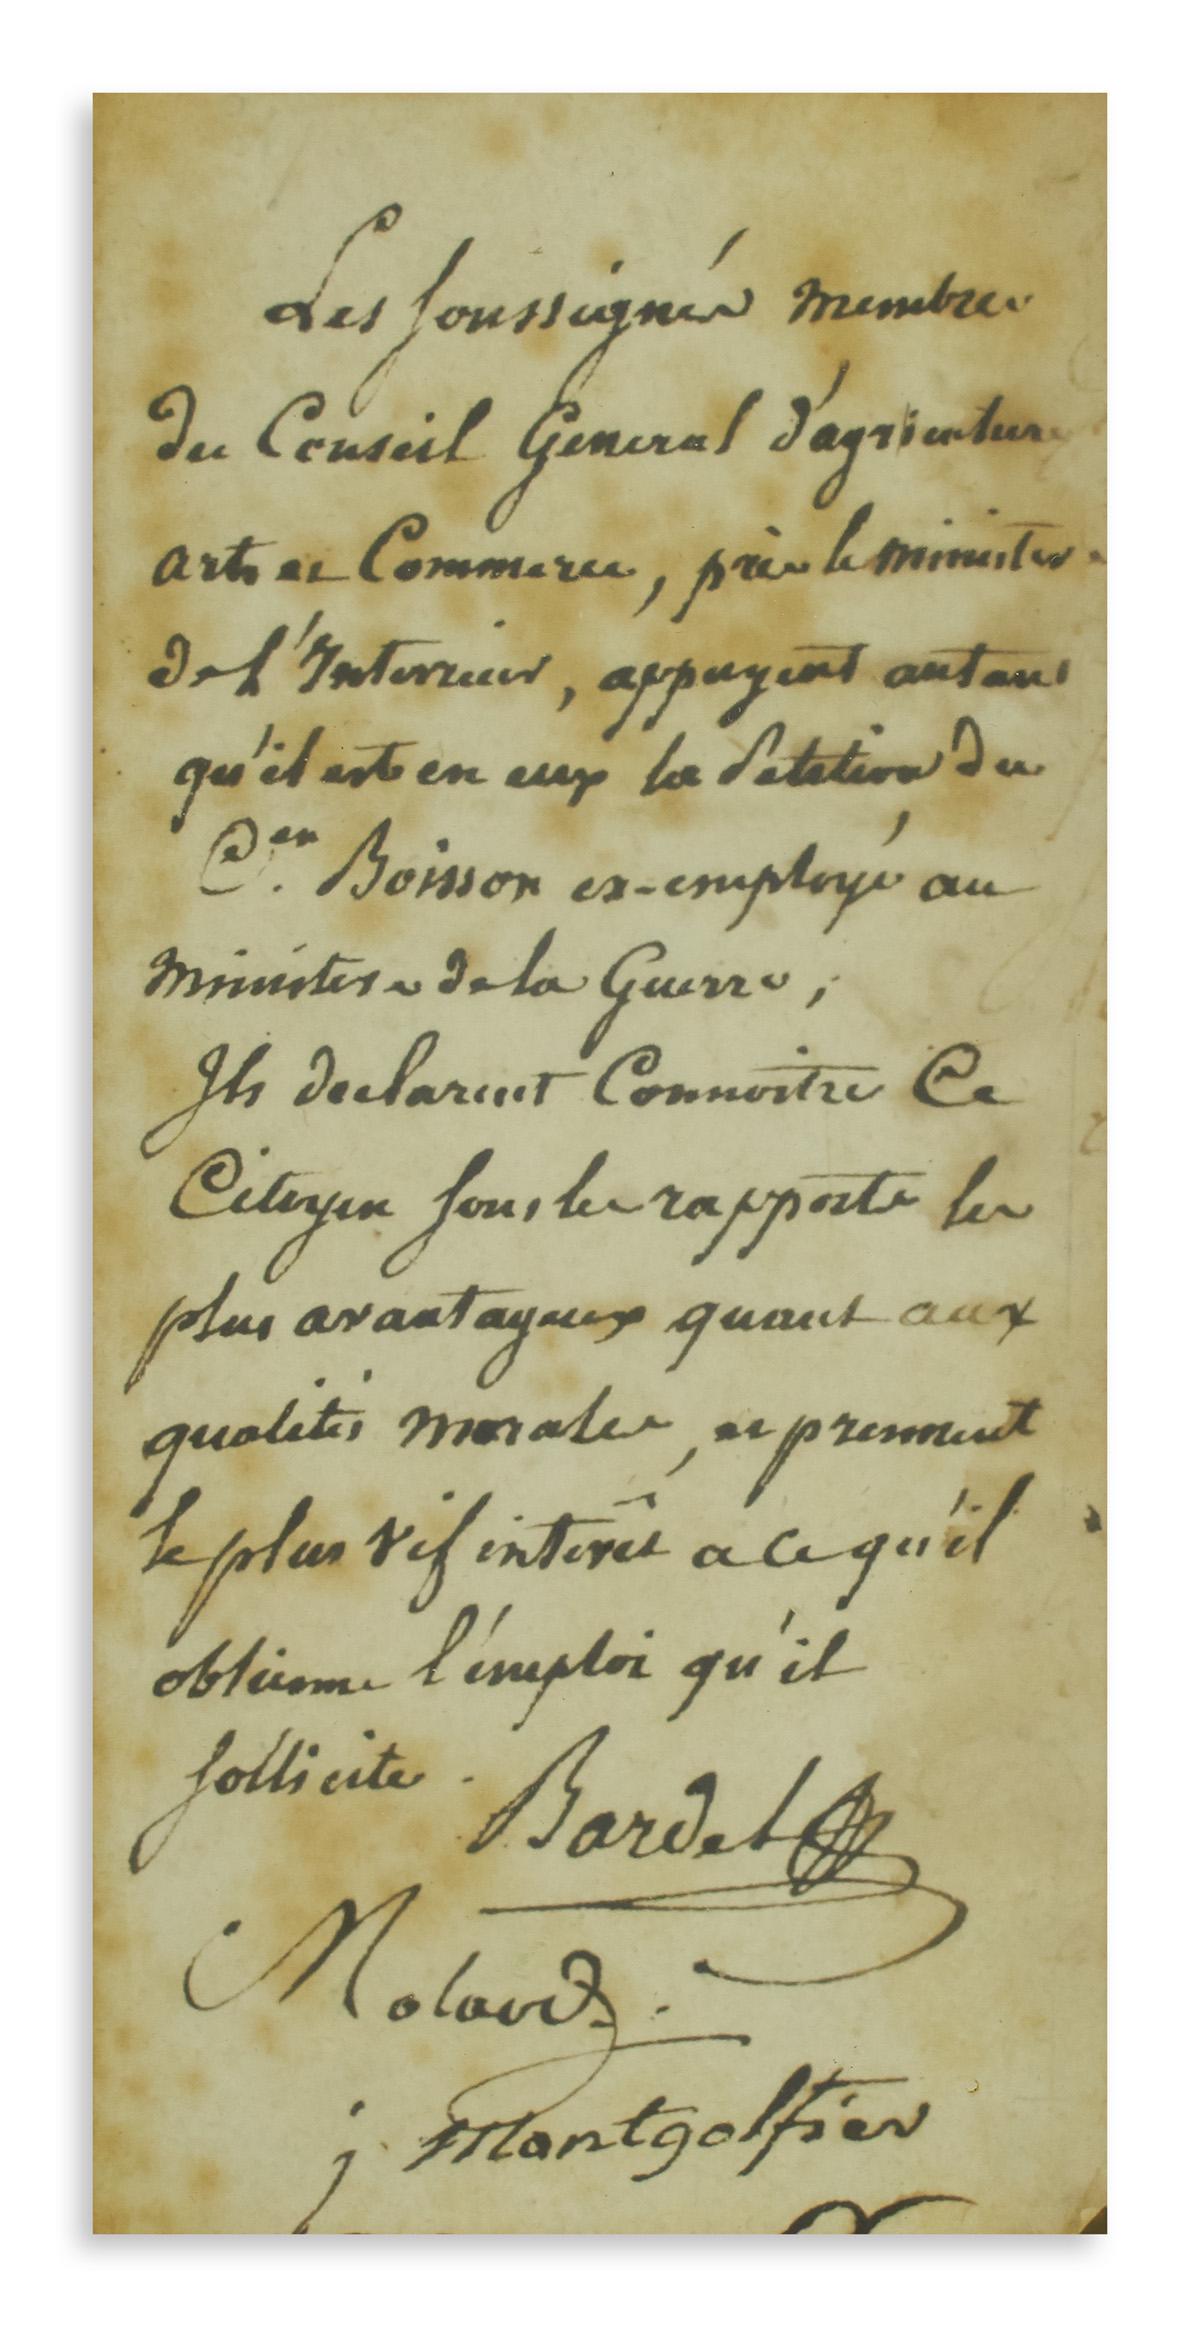 Les soussignés membres
du Conseil General d'agriculture
arts et Commerce, près le ministre
de l'Interieur, appuyent autant
qu'il est en eux la Petition du
C.en Boisson ex-employé au
ministere de la Guerre;
Ils declarent Connoitre Ce
Citoyen sous les rapports les
plus avantageux quant aux
qualités morales, et prennent
le plus vif interêt a ce qu'il
obtienne l'emploi qu'il
sollicite.
Bardel
Molard.
j. Montgolfier